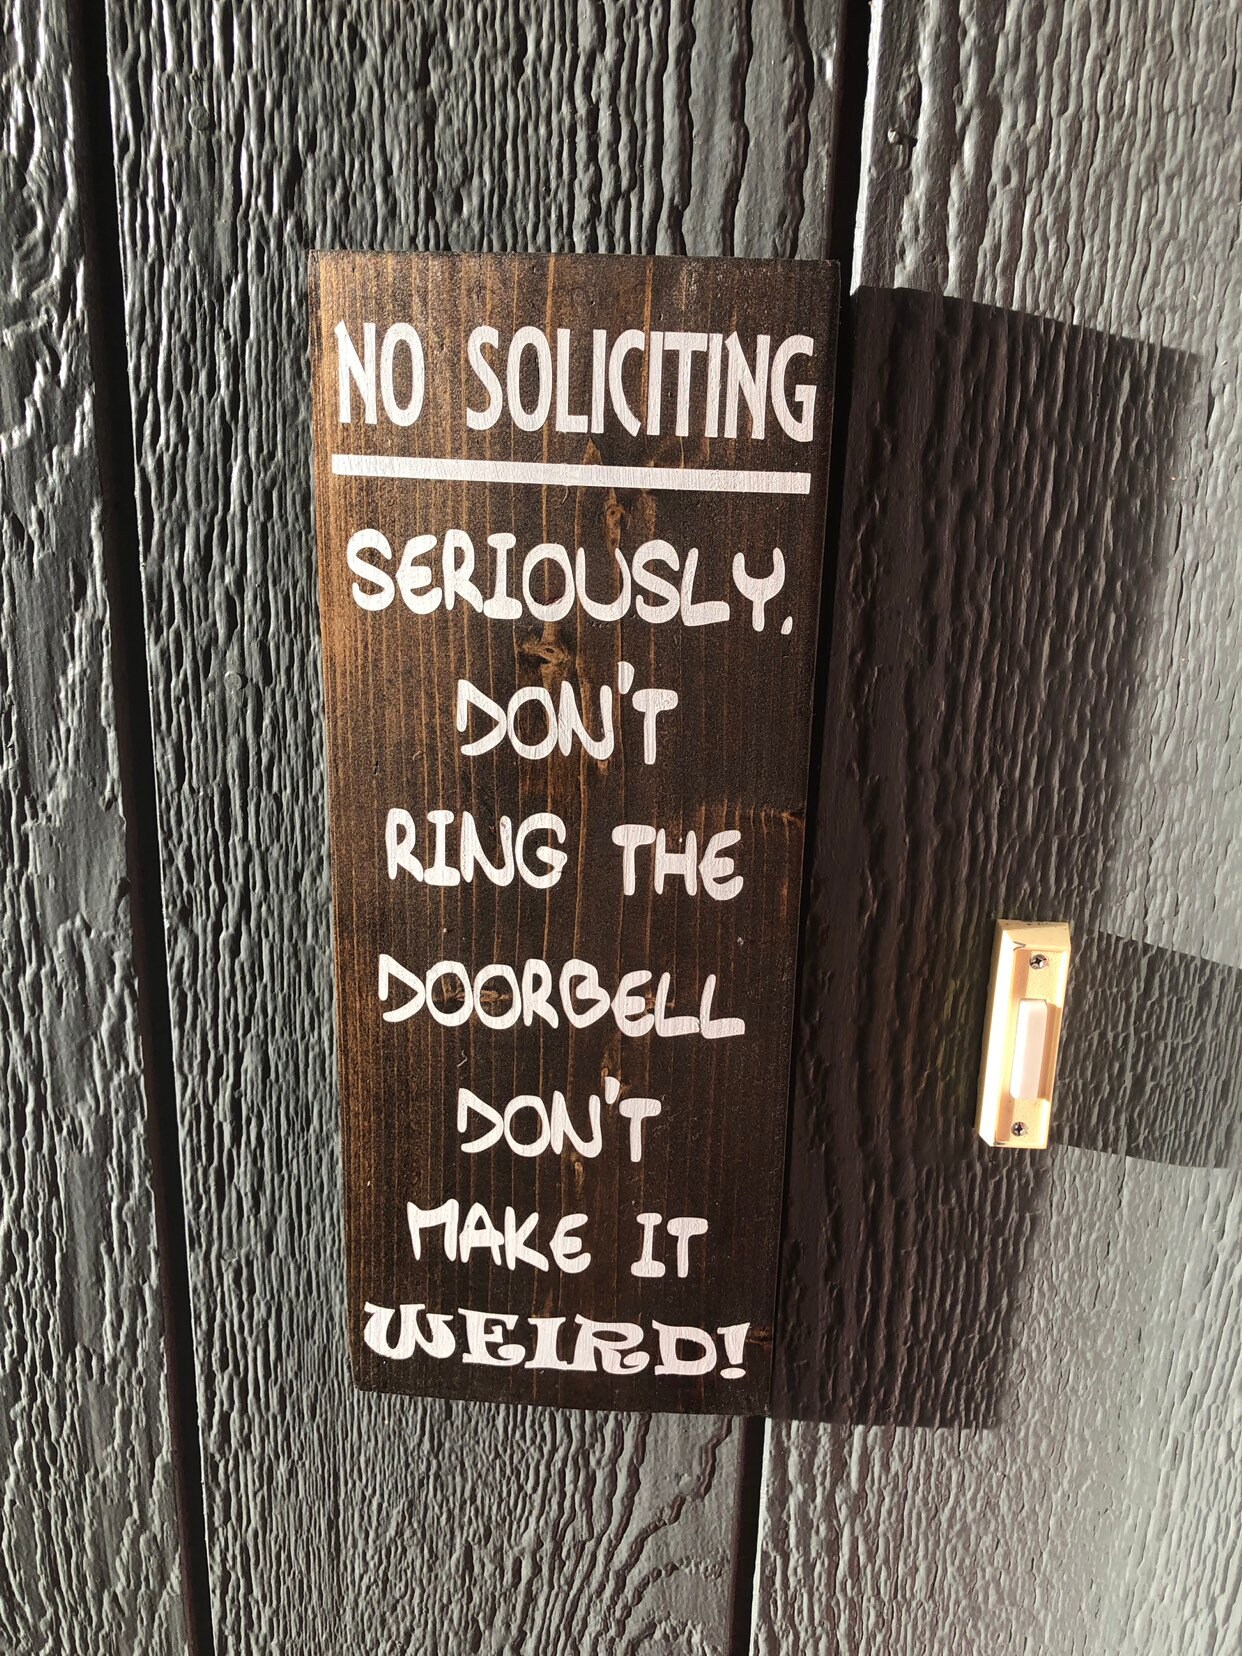 NO SOLICITING
SERIOUSLY,
DON'T
RING THE
DOORBELL
DON'T
MAKE IT
WEIRD!